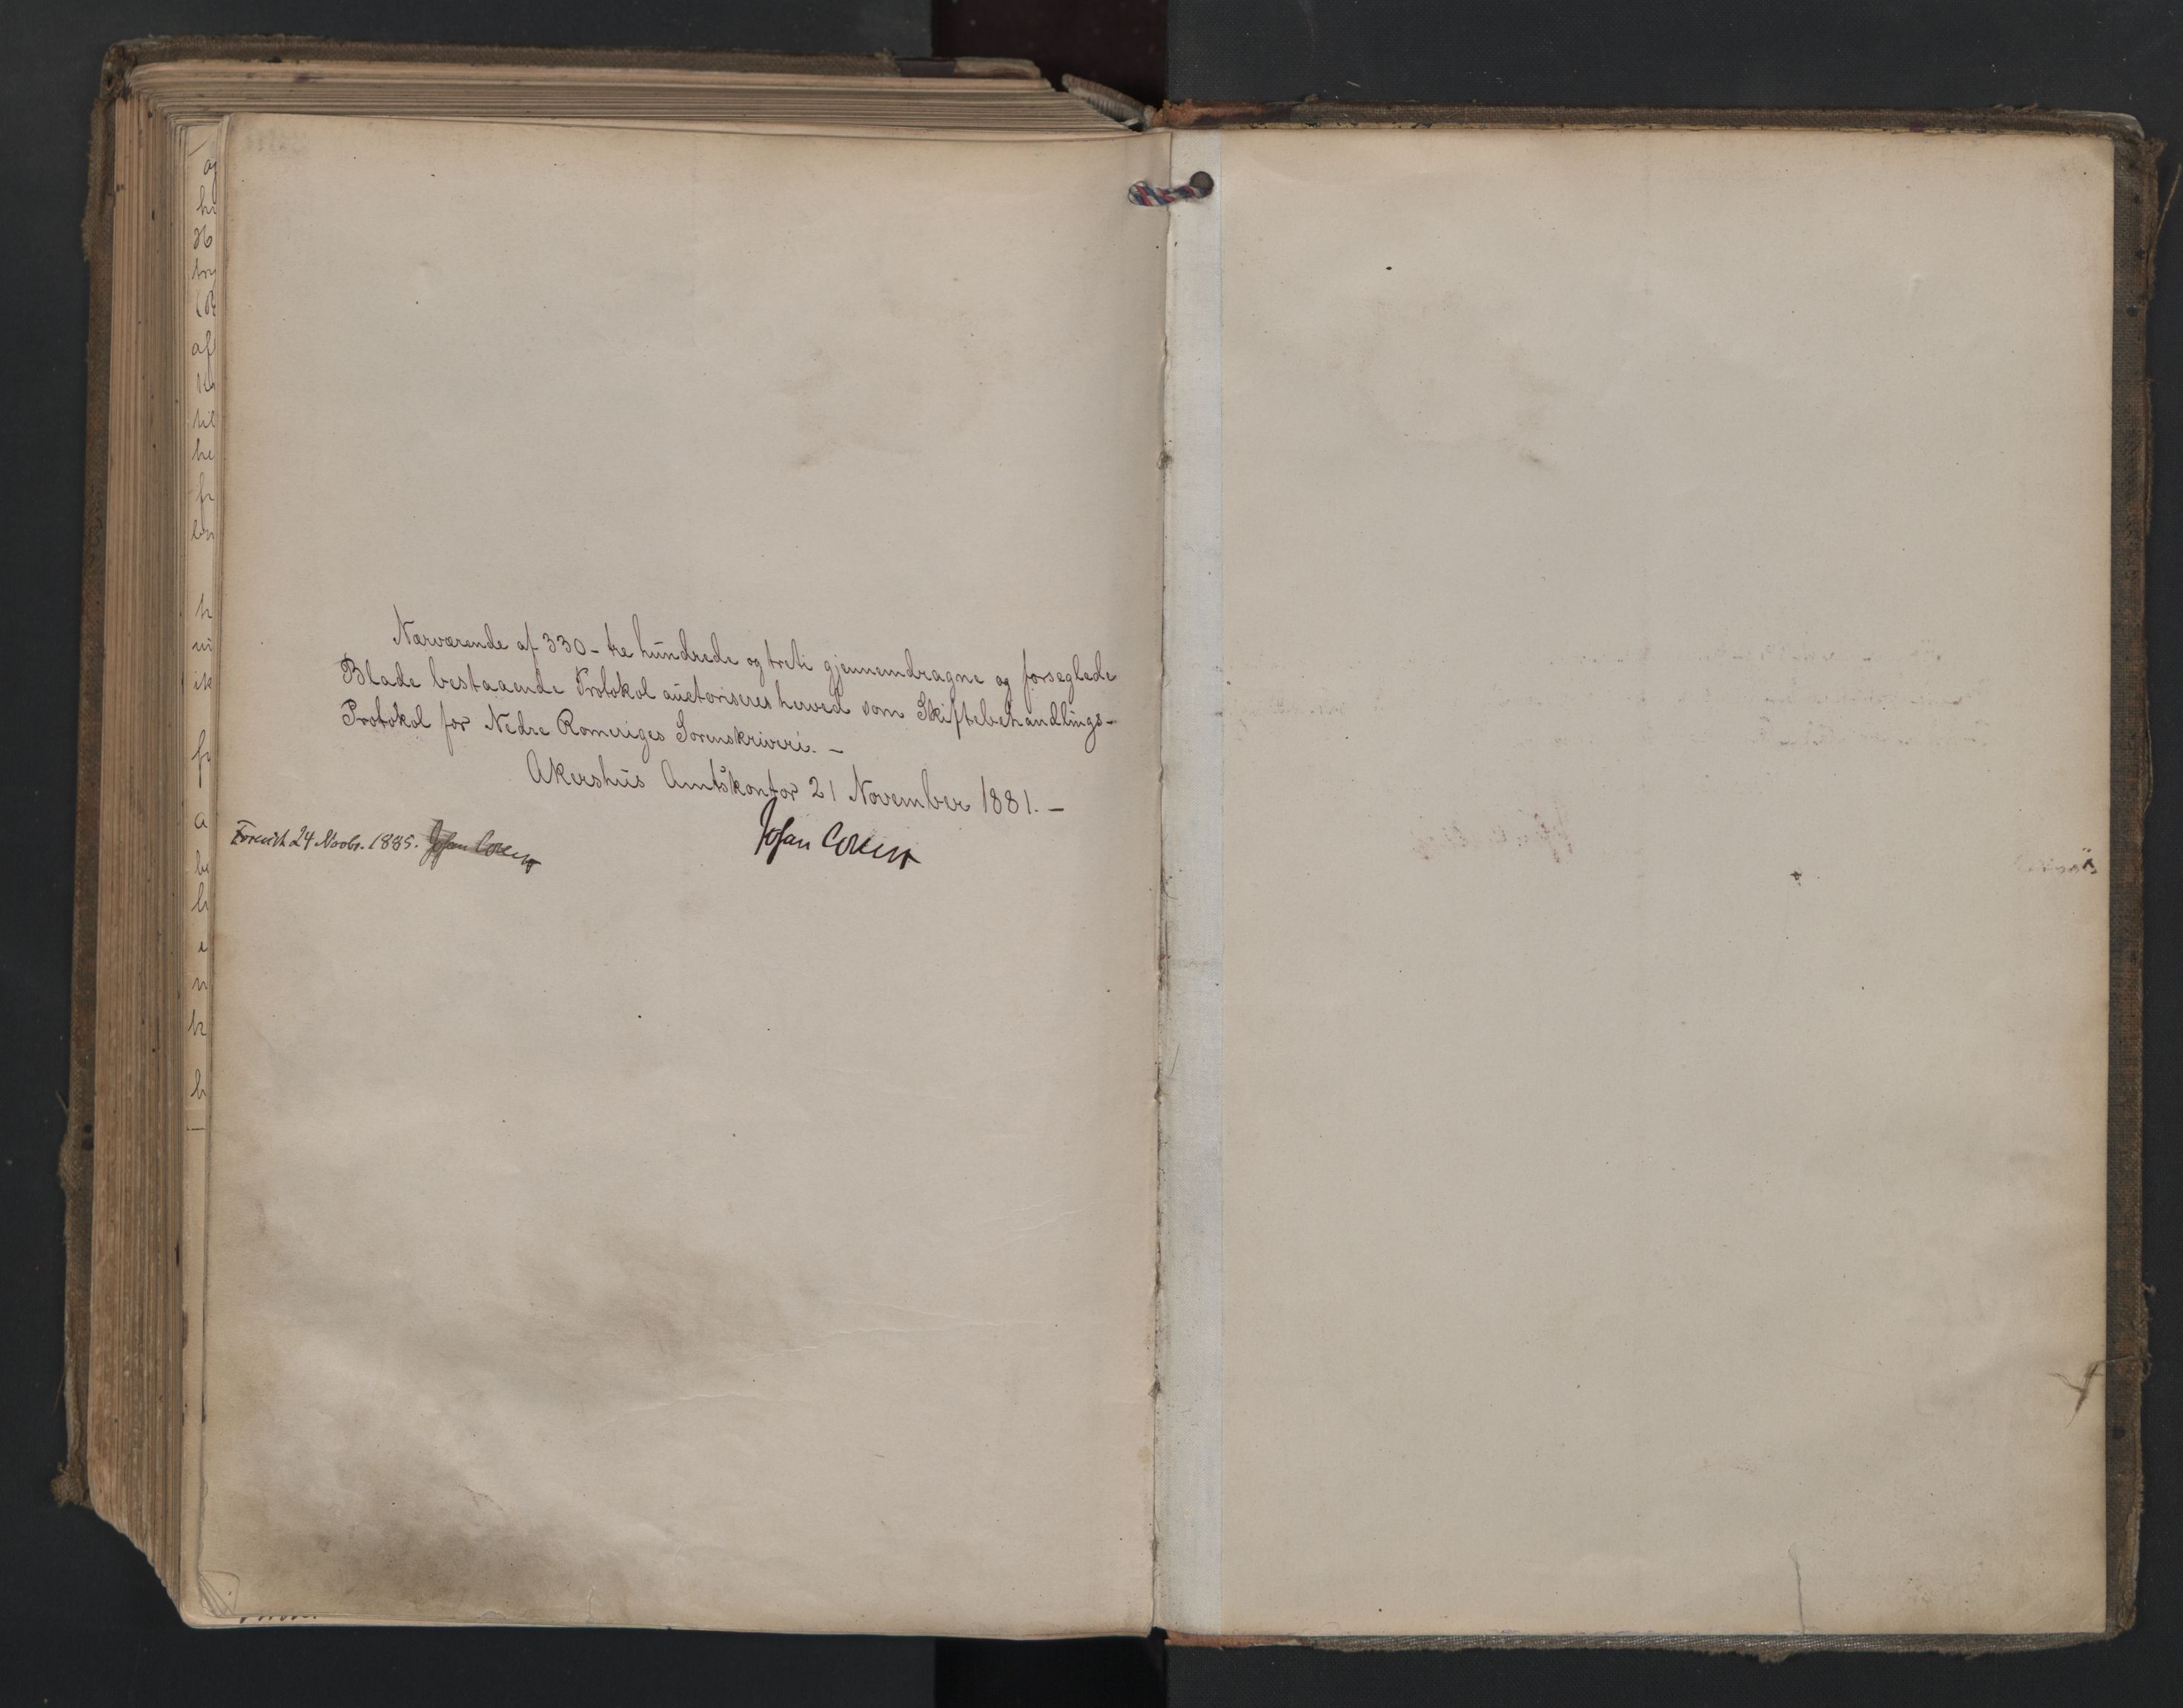 Nærværende af 330 - tre hundrede og treti gjennemdragne og forseglede
Blade bestaaende Protokol auctoriseres herved som Skiftebehandlings-
Protokol for Nedre Romeriges Sorenskriveri. -
Akershus Amtskontor 21 November 1881. -
Johan Collett
Forevist 24 Novbr. 1885. Johan Collett